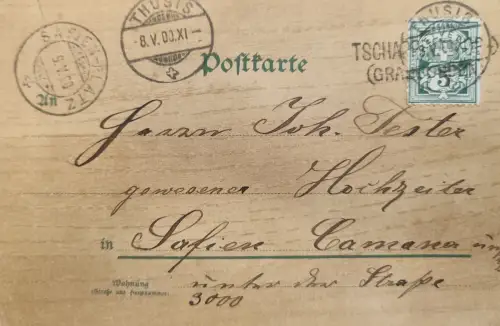 THUSIS
-8.V.00.XI-
SAFIEN-PLATZ
THUSIS
TSCHA
(GRA
5
Postkarte
An
Herrn Joh. Tester
gewesener Hochzeiter
in Safien Camana
unter der Straße
3000
Wohnung
(Straße und Hausnummer)